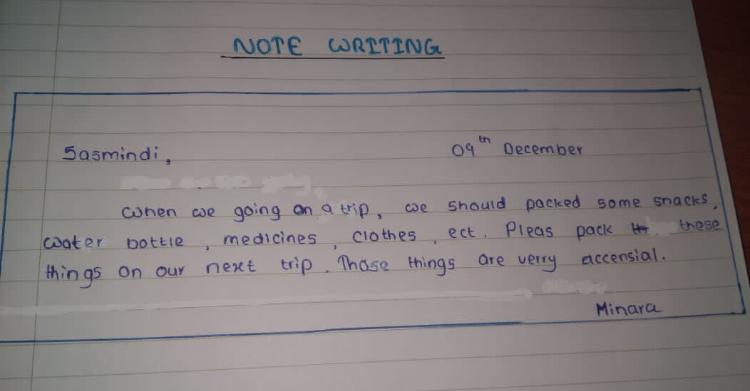 NOTE WRITING
Sasmindi, 09th December
When we going on a trip, we should packed some snacks,
water bottle, medicines, clothes, ect. Pleas pack those
things on our next trip. Thase things are verry accensial.
Minara